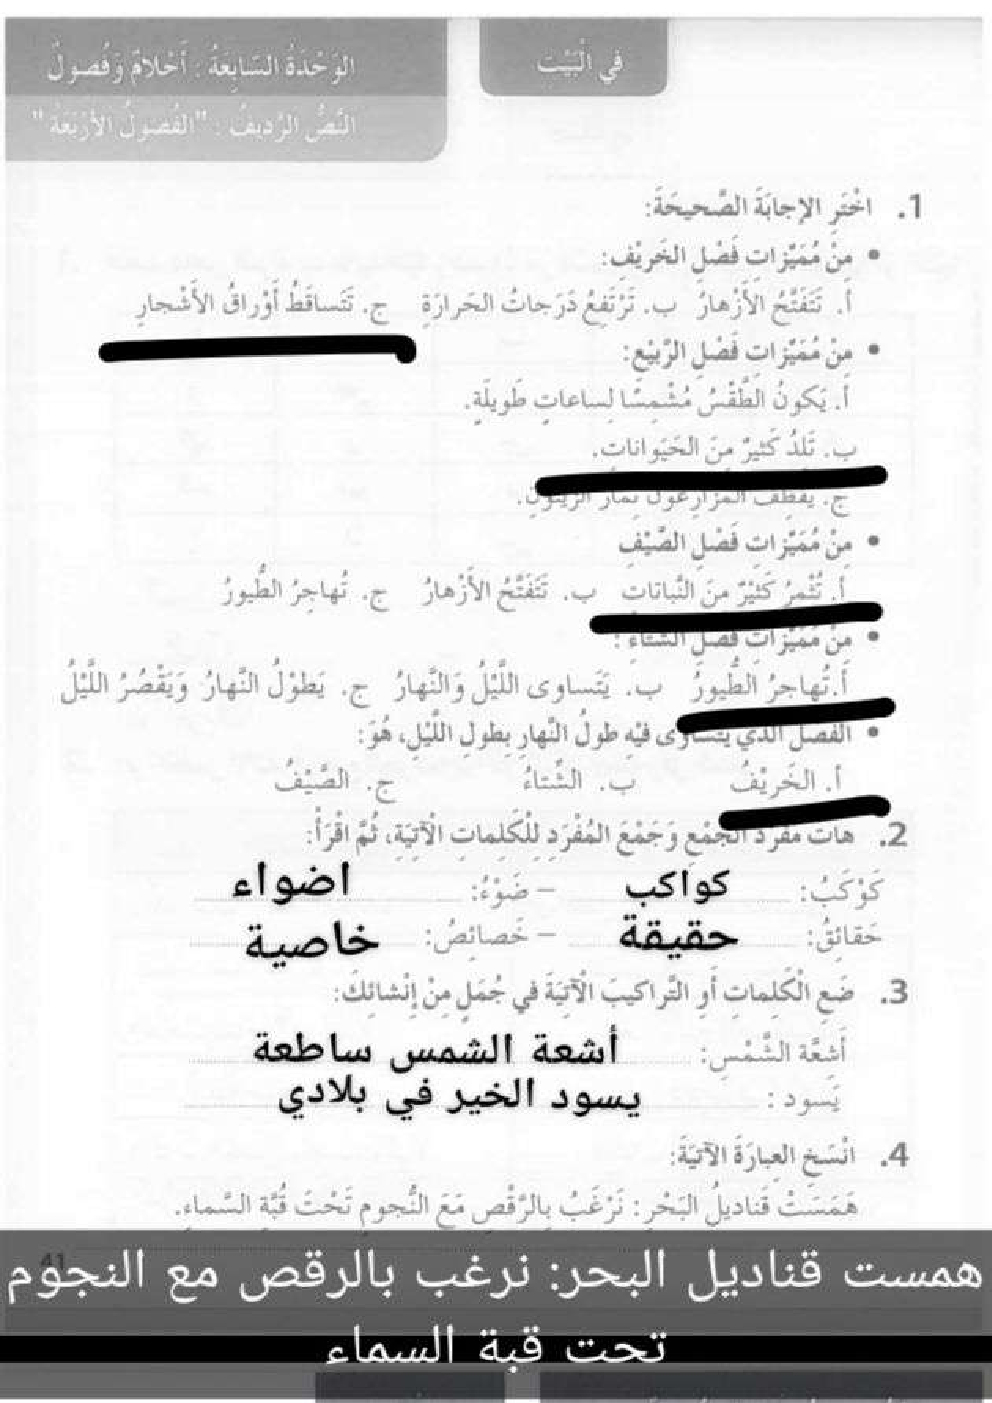 في الْبَيْت
الوَحْدَةُ السّابِعَةُ : أَحْلامٌ وَفُصولٌ
النَّصُّ الرَّديفُ : "الفُصولُ الأَرْبَعَةُ"
1. اخْتَرِ الإِجابَةَ الصَّحيحَةَ:
• مِنْ مُمَيِّزاتِ فَصْلِ الخَريْفِ:
أ. تَتَفَتَّحُ الأَزْهارُ ب. تَرْتَفِعُ دَرَجاتُ الحَرارَةِ ج. تَتَساقَطُ أَوْراقُ الأَشْجارِ
• مِنْ مُمَيِّزاتِ فَصْلِ الرَّبيْعِ:
أ. يَكونُ الطَّقْسُ مُشْمِسًا لِساعاتٍ طَويلَةٍ.
ب. تَلِدُ كَثيرٌ مِنَ الحَيَوانات.
ج. يَقْطِفُ المُزارِعونَ ثِمارَ الزَّيْتونِ.
• مِنْ مُمَيِّزاتِ فَصْلِ الصَّيْفِ
أ. تُثْمِرُ كَثيْرٌ مِنَ النَّباتاتِ ب. تَتَفَتَّحُ الأَزْهارُ ج. تُهاجِرُ الطُّيورُ
• مِنْ مُمَيِّزاتِ فَصْلِ الشّتاءِ :
أ.تُهاجِرُ الطُّيورُ ب. يَتَساوى اللَّيْلُ وَالنَّهارُ ج. يَطوْلُ النَّهارُ وَيَقْصُرُ اللَّيْلُ
• الفَصْلُ الَّذي يَتَساوَى فيْهِ طولُ النَّهارِ بِطولِ اللَّيْلِ، هُوَ:
أ. الخَريْفُ ب. الشِّتاءُ ج. الصَّيْفُ
2. هاتِ مُفْرَدَ الجَمْعِ وَجَمْعَ المُفْرَدِ لِلْكَلِماتِ الْآتِيَةِ، ثُمَّ اقْرَأْ:
كَوْكَبٌ: كواكب – ضَوْءٌ: اضواء
حَقائِقُ: حقيقة – خَصائِصُ: خاصية
3. ضَعِ الْكَلِماتِ أَوِ التَّراكيبَ الْآتِيَةَ في جُمَلٍ مِنْ إِنْشائِكَ:
أَشِعَّة الشَّمْسِ: أشعة الشمس ساطعة
يَسود : يسود الخير في بلادي
4. انْسَخِ العِبارَةَ الآتِيَةَ:
هَمَسَتْ قَناديلُ البَحْرِ : نَرْغَبُ بِالرَّقْصِ مَعَ النُّجومِ تَحْتَ قُبَّةِ السَّماءِ.
41
همست قناديل البحر: نرغب بالرقص مع النجوم
تحت قبة السماء